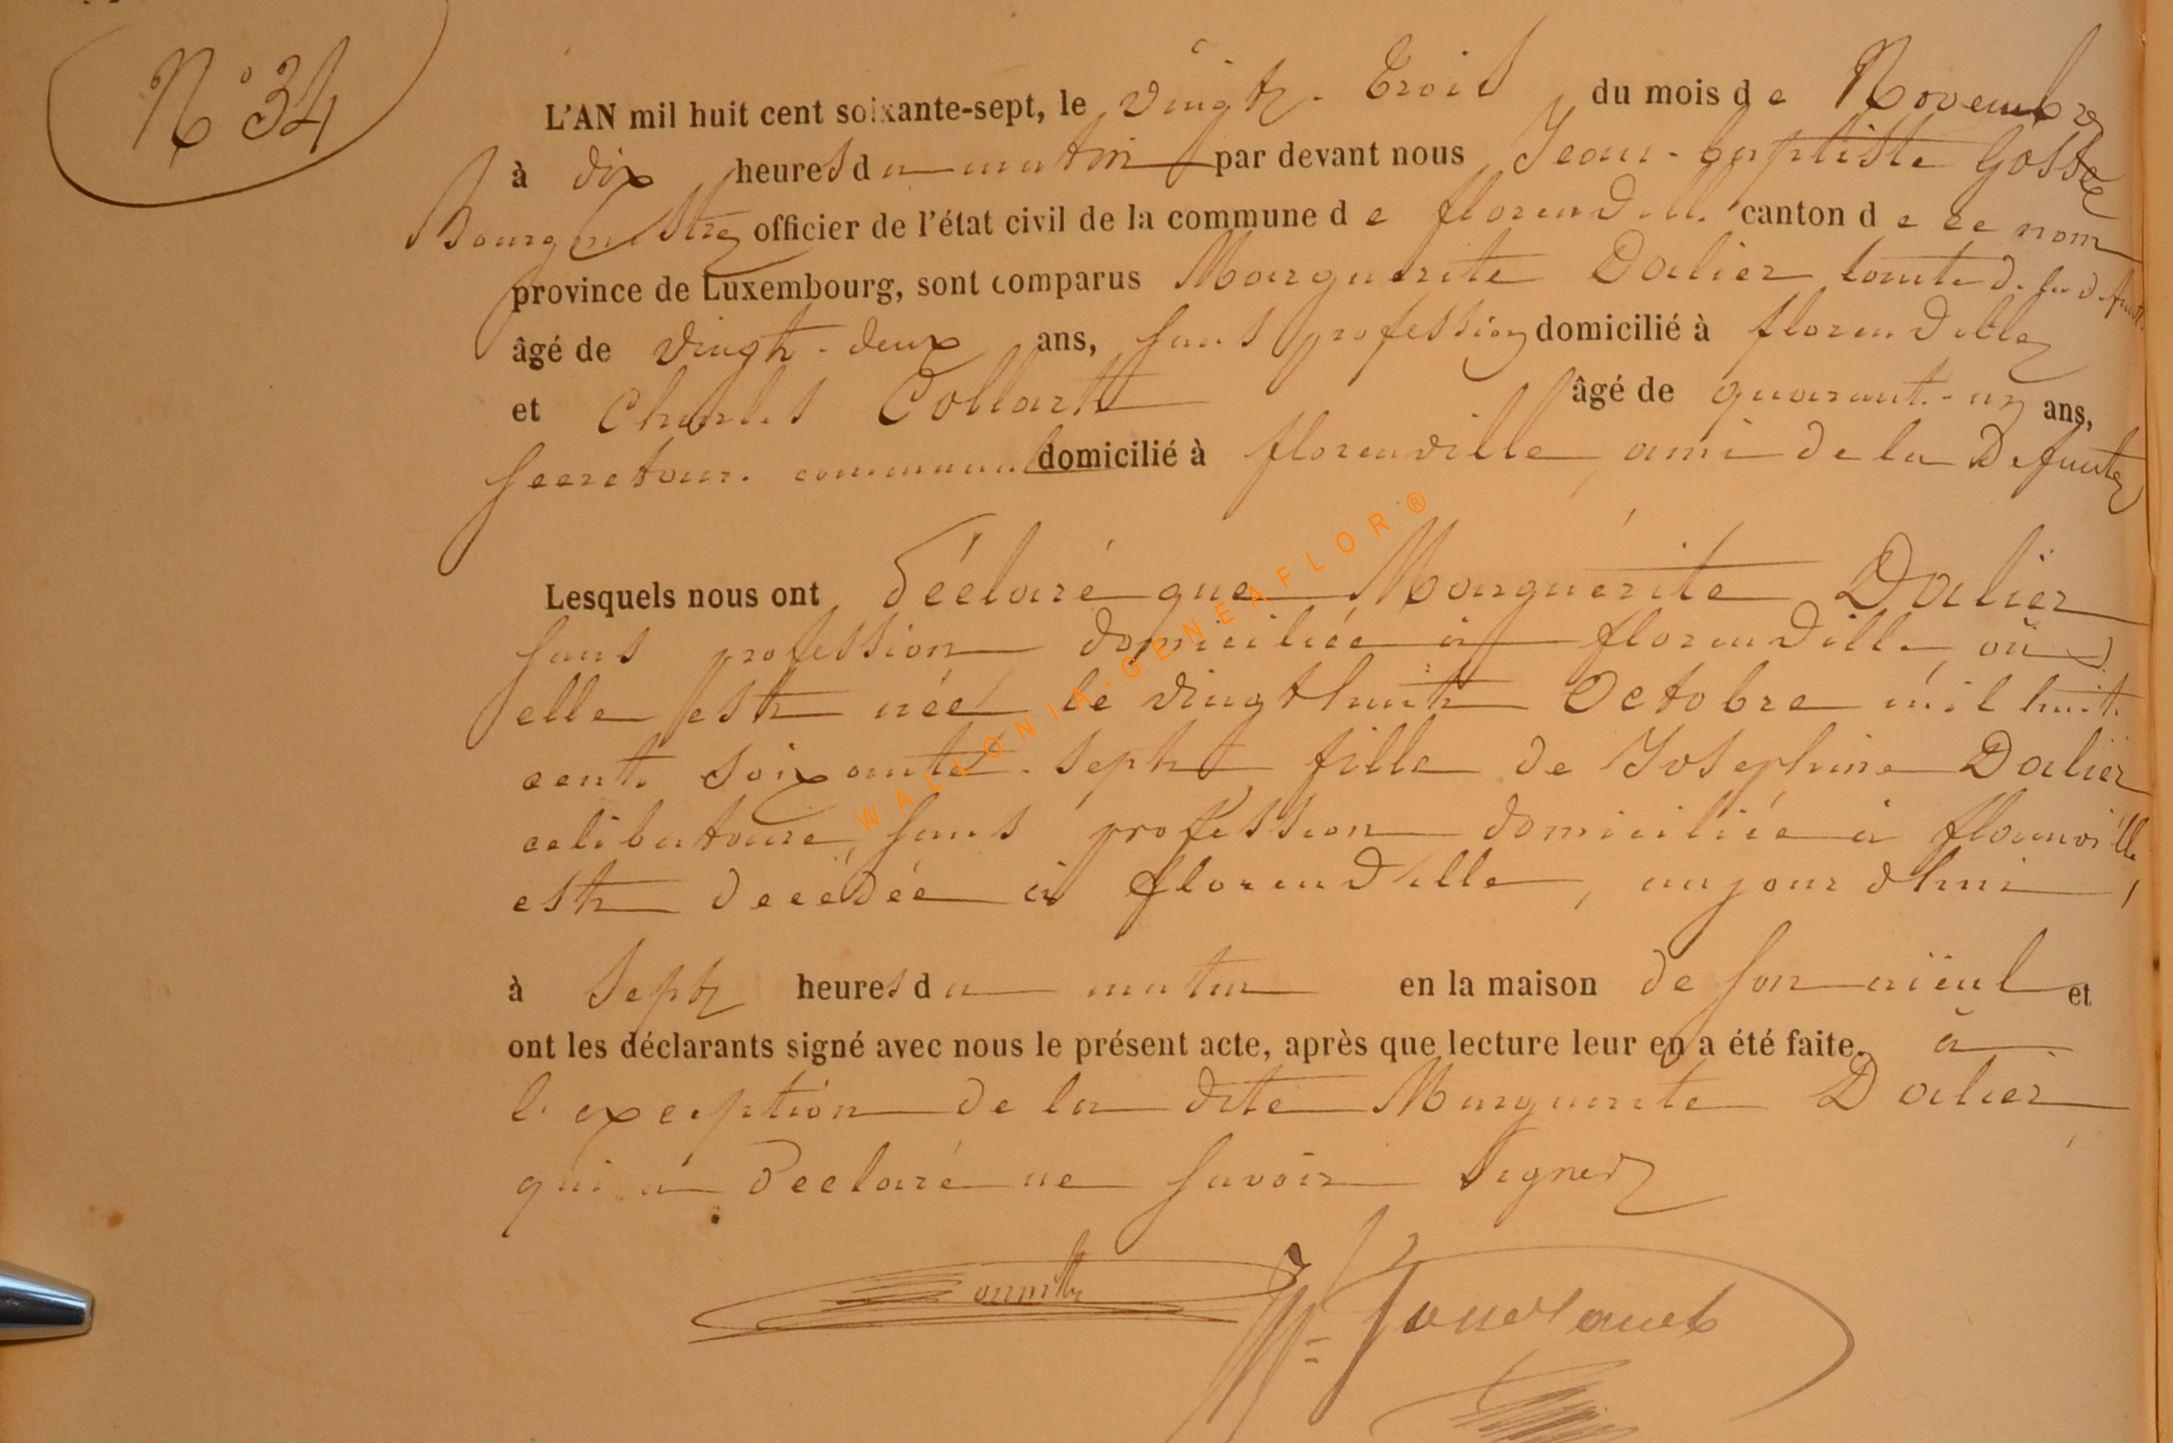 N° 34
L'AN mil huit cent soixante-sept, le vingt-trois du mois de Novembre
à dix heures du matin par devant nous Jean-baptiste
Bourgmestre officier de l'état civil de la commune de florenville canton de ce nom
province de Luxembourg, sont comparus Marguerite Dalier tante de la défunte
âgé de vingt-deux ans, sans profession domicilié à florenville
et Charles Collart âgé de quarante-un ans,
secretaire communal domicilié à florenville, ami de la Defunte
Lesquels nous ont déclaré que Marguérite Dalier
sans profession domiciliée à florenville, où
elle est née le vingthuit Octobre mil huit
cent soixante-sept fille de Josephine Dalier
celibataire, sans profession domiciliée à florenville
est decédée à florenville, aujourdhui,
à sept heures du matin en la maison de son aïeul et
ont les déclarants signé avec nous le présent acte, après que lecture leur en a été faite. à
l'exception de la dite Marguerite Dalier
qui a declaré ne savoir signer
WALLONIA-GENEAFLOR®